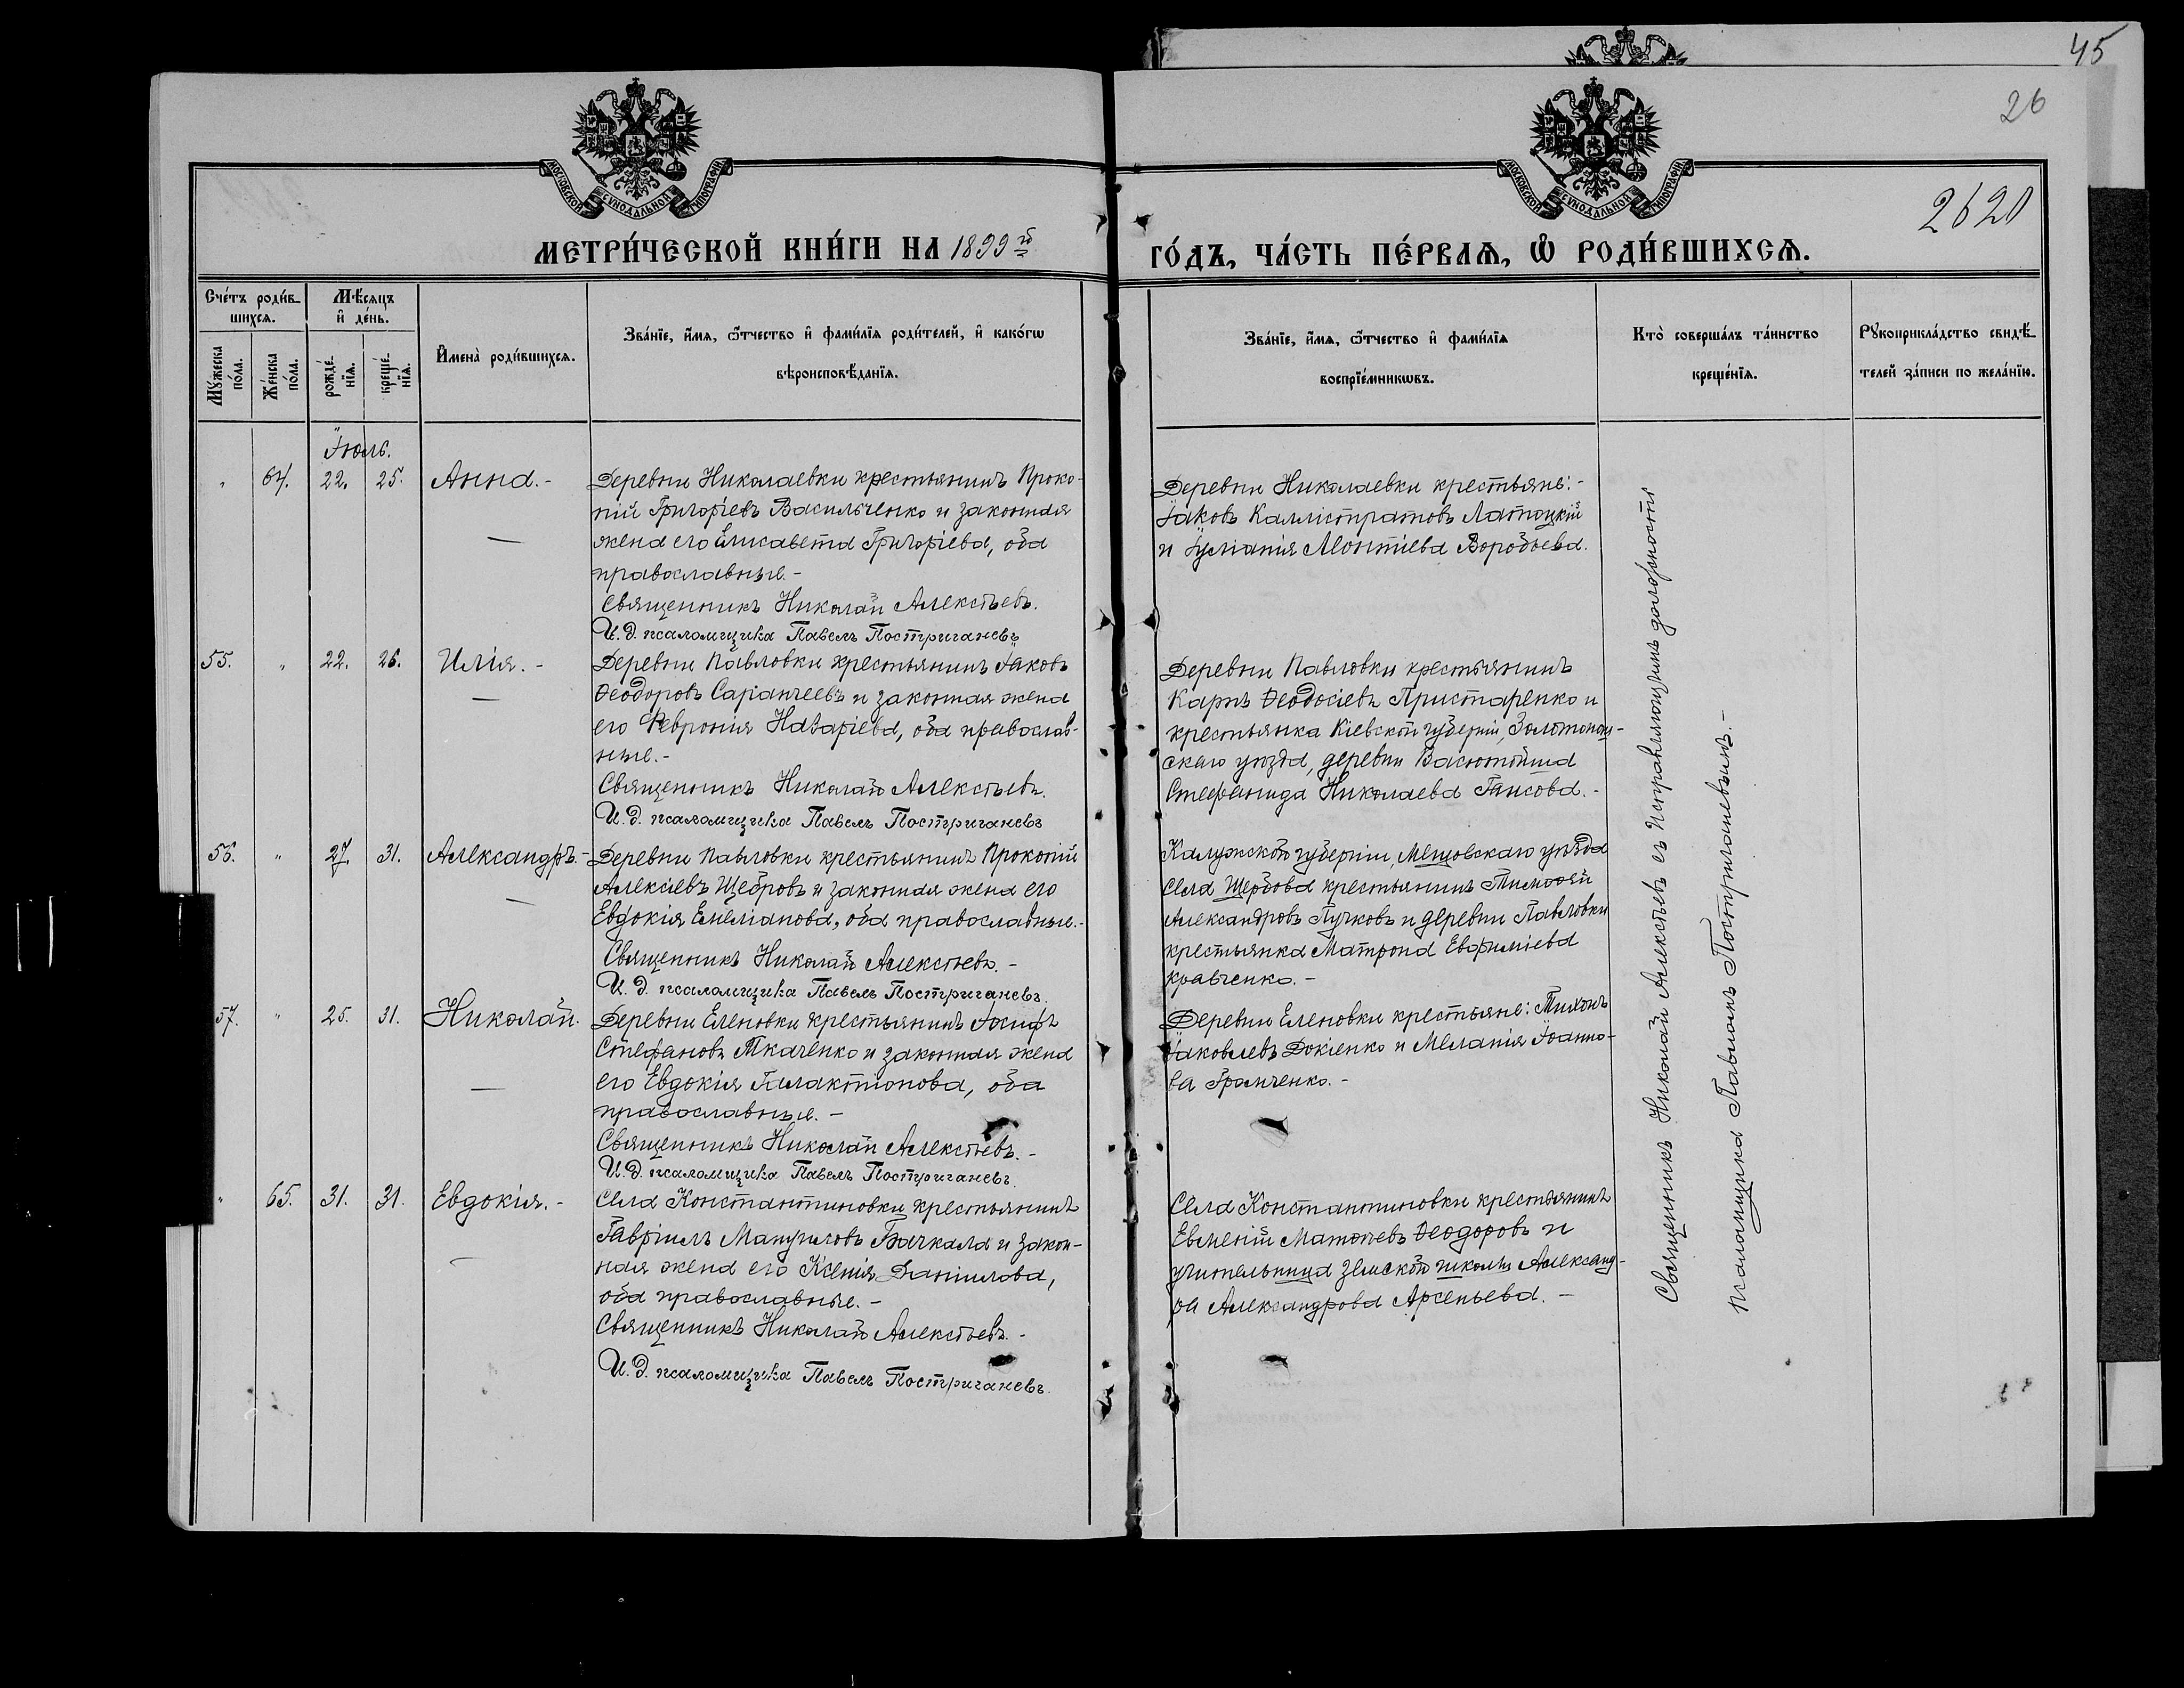 45
26
2620
МОСКОВСКОЙ СѴНОДАЛЬНОЙ ТИПОГРАФІИ
МОСКОВСКОЙ СѴНОДАЛЬНОЙ ТИПОГРАФІИ
МЕТРИ́ЧЕСКОЙ КНИ́ГИ НА 1899 й
ГО́ДЪ, ЧА́СТЬ ПЕ́РВАѦ, Ѡ҆ РОДИ́ВШИХСѦ.
Сче́тъ роди́в-
шихсѧ.
Мѣ́сѧцъ
и҆ де́нь.
Мꙋ́жеска
по́ла.
Же́нска
по́ла.
рожде́-
нїѧ.
креще́-
нїѧ.
И҆мена̀ роди́вшихсѧ.
Зва́нїе, и҆́мѧ, ѻ҆́тчество и҆ фами́лїѧ роди́телей, и҆ како́гѡ
вѣроисповѣ́данїѧ.
Зва́нїе, и҆́мѧ, ѻ҆́тчество и҆ фами́лїѧ
воспрїе́мникѡвъ.
Кто̀ соверша́лъ та́инство
креще́нїѧ.
Рꙋкоприкла́дство свидѣ́-
телей за́писи по жела́нїю.
Іюль.
" 64. 22. 25. Анна.- Деревни Николаевки крестьянинъ Проко-
пій Григоріевъ Васильченко и законная
жена его Елисавета Григоріева, оба
православные.-
Священникъ Николай Алексѣевъ.
И.д. псаломщика Павелъ Постригачевъ
Деревни Николаевки крестьяне:-
Іаковъ Каллистратовъ Латоцкій
и Іуліанія Леонтіева Воробьева.
55. " 22. 26. Илія.- Деревни Павловки крестьянинъ Іаковъ
Ѳеодоровъ Саранчеевъ и законная жена
его Февронія Назаріева, оба православ-
ные.-
Священникъ Николай Алексѣевъ.
И.д. псаломщика Павелъ Постригачевъ
Деревни Павловки крестьянинъ
Карпъ Ѳеодосіевъ Пристаренко и
крестьянка Кіевской губерніи, Золотонош-
скаго уѣзда, деревни
Стефанида Николаева Гансова.-
56. " 27. 31. Александръ.- Деревни Павловки крестьянинъ Прокопій
Алексіевъ Щебровъ и законная жена его
Евдокія Емеліанова, оба православные.-
Священникъ Николай Алексѣевъ.-
И.д. псаломщика Павелъ Постригачевъ.
Калужской губерніи, Мещовскаго уѣзда
села Щербова крестьянинъ Тимоѳей
Александровъ Пучковъ и деревни Павловки
крестьянка Матрона Евфиміева
Кравченко.-
57. " 25. 31. Николай. Деревни Еленовки крестьянинъ Іосифъ
Стефановъ Ткаченко и законная жена
его Евдокія Галактіонова, оба
православные.-
Священникъ Николай Алексѣевъ.-
И.д. псаломщика Павелъ Постригачевъ.
Деревни Еленовки крестьяне: Тихонъ
Іаковлевъ Докіенко и Меланія Іоанно-
ва Громченко.-
" 65. 31. 31. Евдокія.- Села Константиновки крестьянинъ
Гавріилъ Мануиловъ Бачкала и закон-
ная жена его Ксенія Даніилова,
оба православные.-
Священникъ Николай Алексѣевъ.-
И.д. псаломщика Павелъ Постригачевъ.
Села Константиновки крестьянинъ
Евмений Матѳеевъ Ѳеодоровъ и
учительница земской школы Александ-
ра Александрова Арсеньева.-
Священникъ Николай Алексѣевъ съ Исправляющимъ должность
псаломщика Павломъ Постригачевымъ.-